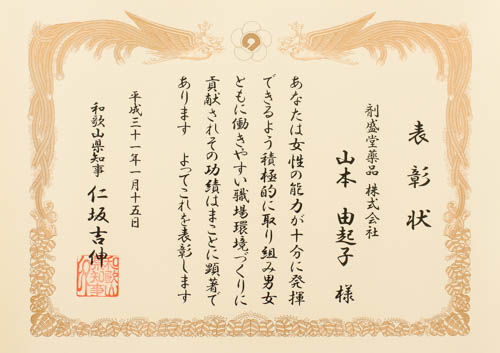 表彰状
剤盛堂薬品 株式会社
山本 由起子 様
あなたは女性の能力が十分に発揮
できるよう積極的に取り組み男女
ともに働きやすい職場環境づくりに
貢献されその功績はまことに顕著で
あります よってこれを表彰します
平成三十一年一月十五日
和歌山県知事 仁坂吉伸
和歌山
県知事
之印